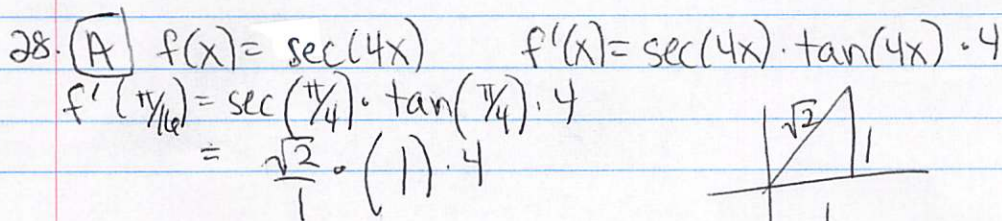 28. A f(x) = sec(4x) f'(x) = sec(4x) · tan(4x) · 4
f'(π/16) = sec(π/4) · tan(π/4) · 4
= √2/1 · (1) · 4
√2 1
1